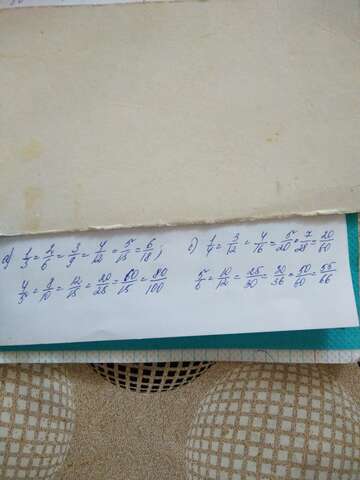 а) 1/3 = 2/6 = 3/9 = 4/12 = 5/15 = 6/18;
4/5 = 8/10 = 12/15 = 20/25 = 60/15 = 80/100
б) 1/4 = 3/12 = 4/16 = 5/20 = 7/28 = 20/80
5/6 = 10/12 = 25/30 = 30/36 = 50/60 = 55/66